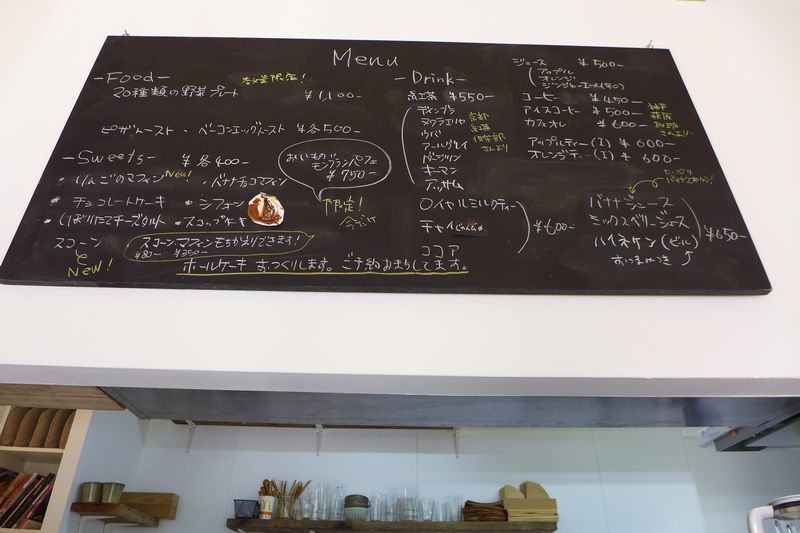 Menu
-Food-
数量限定!
20種類の野菜プレート ¥1,100-
ピザトースト・ベーコンエッグトースト ¥各500-
-Sweets- ¥各400-
・りんごのマフィン New! ・バナナチョコマフィン
・チョコレートケーキ ・シフォン
・しぼりたてチーズタルト ・スコップケーキ
スコーン
New!
スコーン、マフィンもちかえりできます!
¥350-
ホールケーキ おつくりします。ご予約おまちしてます。
おいもの
モンブランパフェ
¥750-
限定!
今だけ
-Drink-
紅茶 ¥550-
ディンブラ
ヌワラエリヤ
ウバ
アールグレイ
ダージリン
キーマン
アッサム
京都
紅茶
さんより
ロイヤルミルクティー
チャイ
ココア
¥600-
ジュース ¥500-
アップル
オレンジ
ジンジャーエール(辛口)
コーヒー ¥450-
アイスコーヒー ¥500-
カフェオレ ¥600-
神戸
萩原
珈琲
さんより
アップルティー(I) ¥600-
オレンジティー(I) ¥600-
たっぷり
バナナジュース
ミックスベリージュース
ハイネケン(ビール)
おつまみつき
¥650-